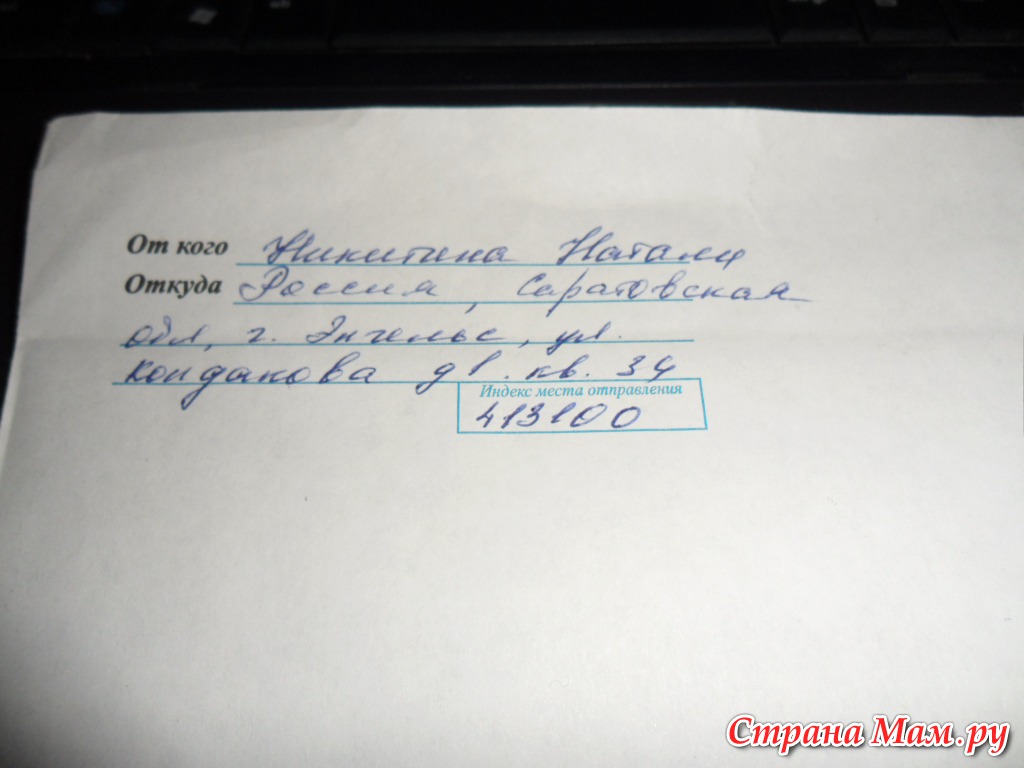 От кого Никитина Натали
Откуда Россия, Саратовская
обл, г. Энгельс, ул.
Кондакова д1. кв. 34
Индекс места отправления
413100
Страна Мам.ру